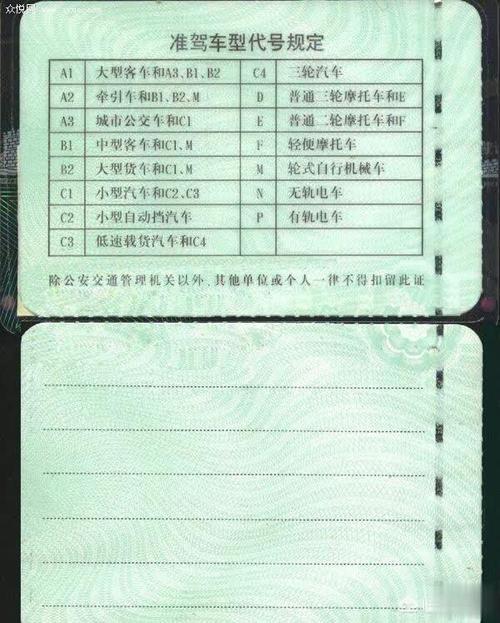 众悦网
准驾车型代号规定
A1 大型客车和A3、B1、B2 C4 三轮汽车
A2 牵引车和B1、B2、M D 普通三轮摩托车和E
A3 城市公交车和C1 E 普通二轮摩托车和F
B1 中型客车和C1、M F 轻便摩托车
B2 大型货车和C1、M M 轮式自行机械车
C1 小型汽车和C2、C3 N 无轨电车
C2 小型自动挡汽车 P 有轨电车
C3 低速载货汽车和C4
除公安交通管理机关以外，其他单位或个人一律不得扣留此证